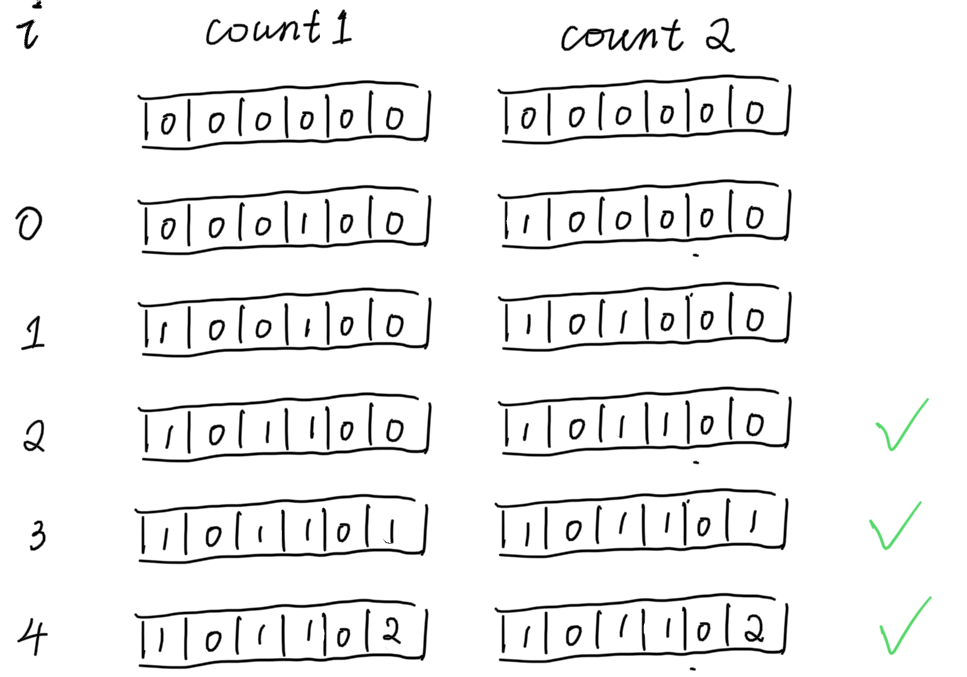 i count 1 count 2
0 0 0 0 0 0 0 0 0 0 0 0
0 0 0 0 1 0 0 1 0 0 0 0 0
1 1 0 0 1 0 0 1 0 1 0 0 0
2 1 0 1 1 0 0 1 0 1 1 0 0
3 1 0 1 1 0 1 1 0 1 1 0 1
4 1 0 1 1 0 2 1 0 1 1 0 2